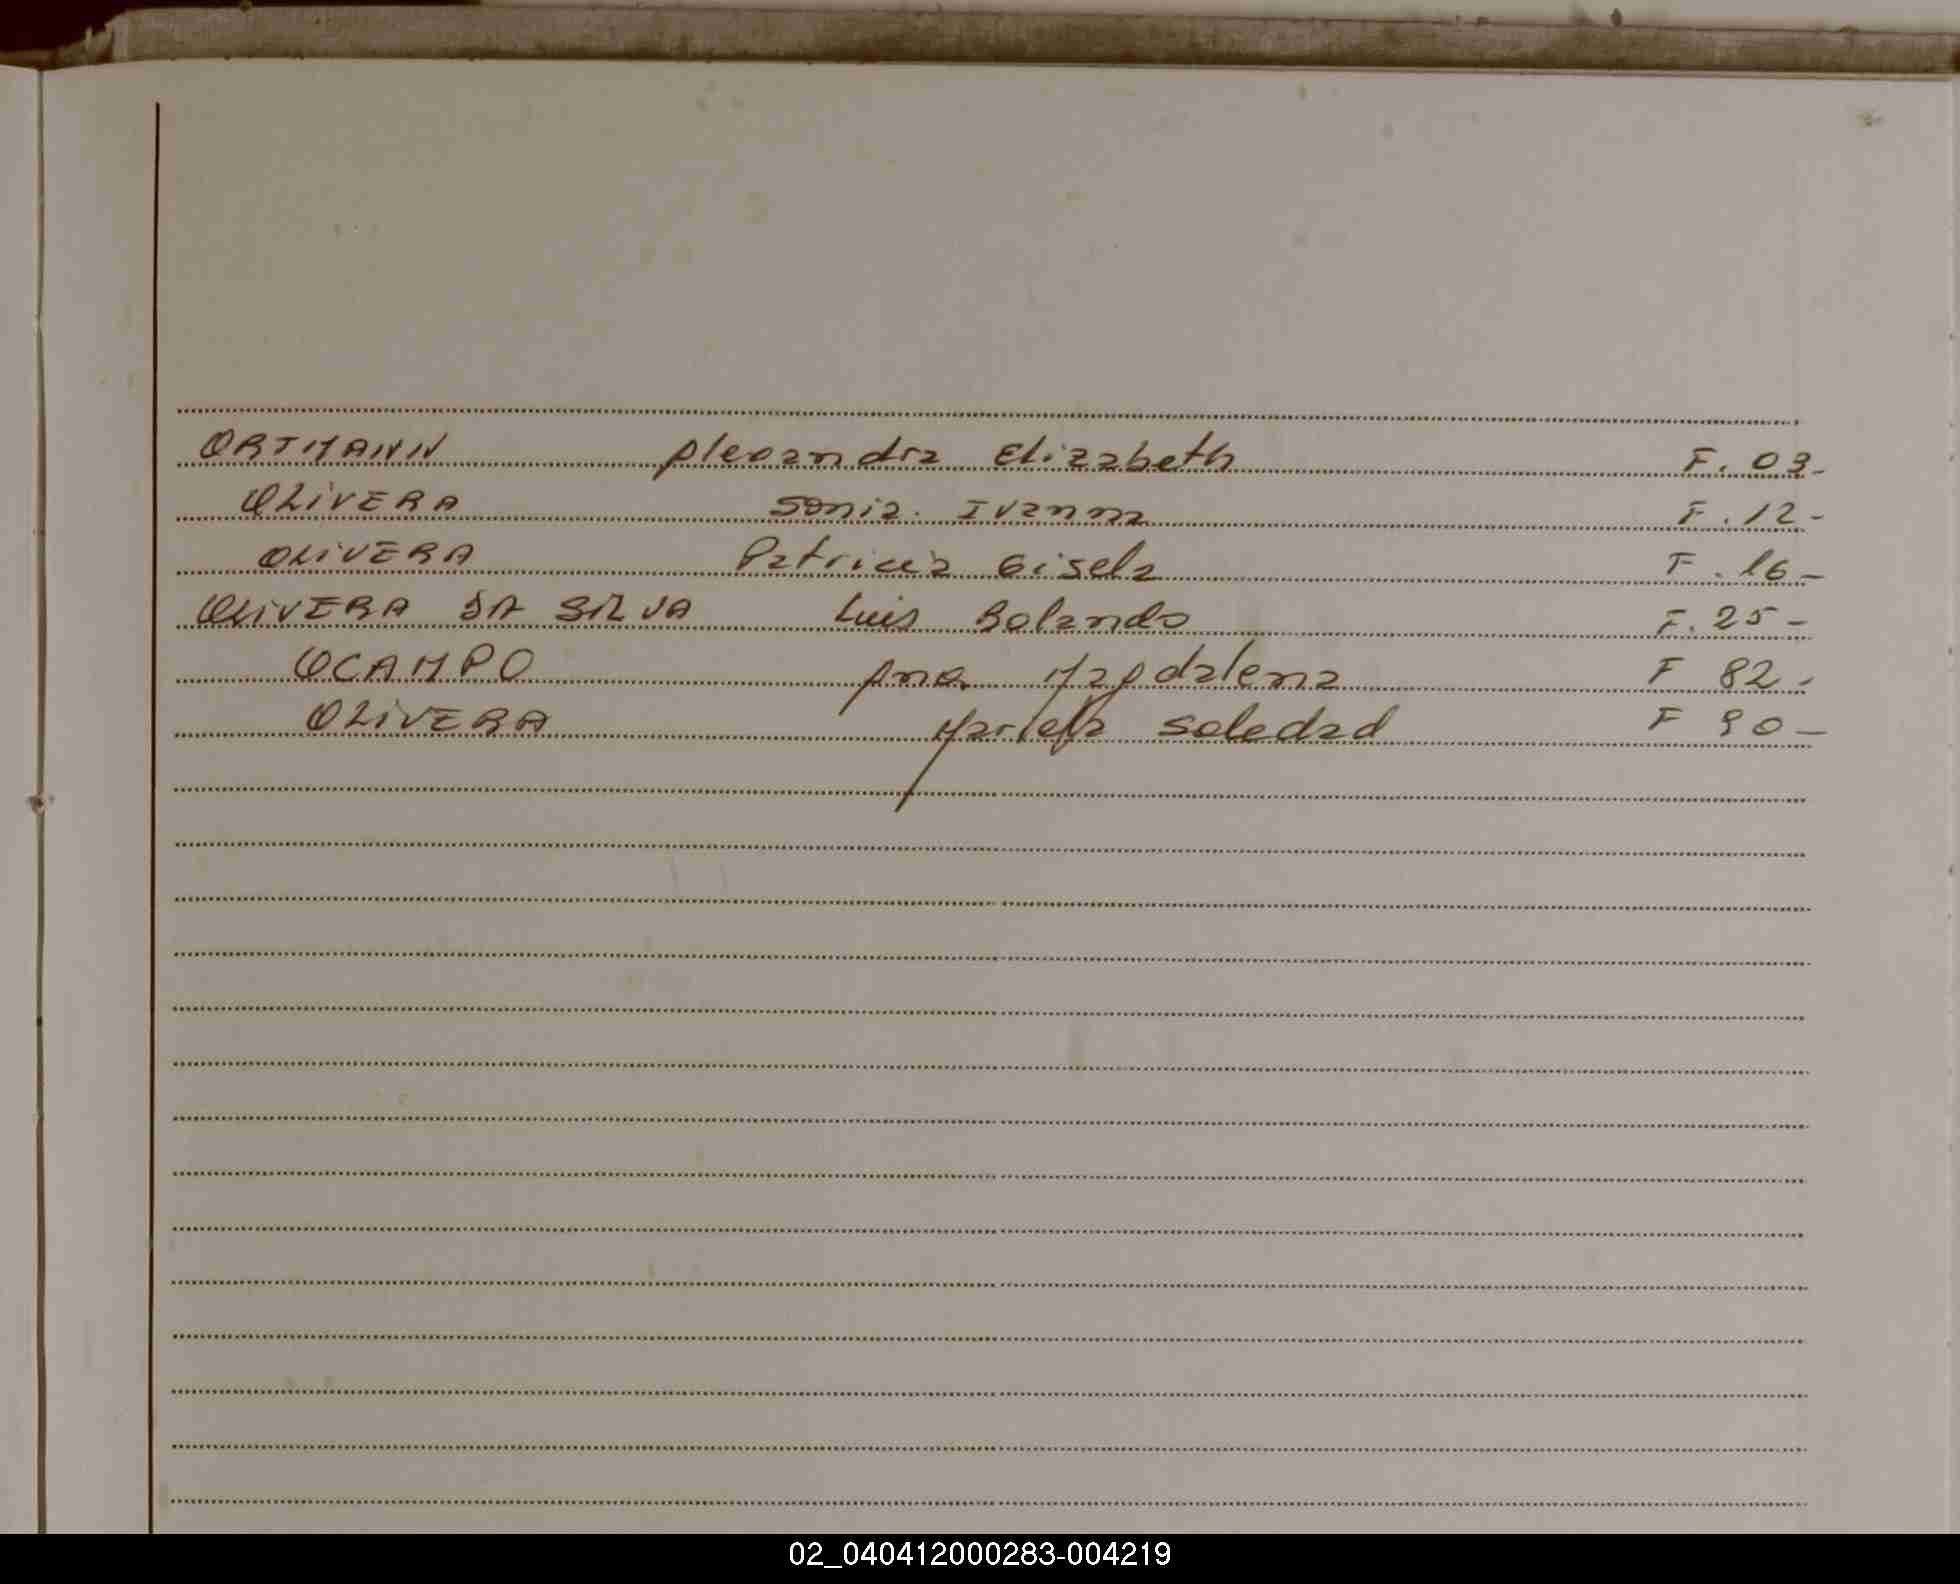 ORTMANN Alexandra Elizabeth F. 09-
OLIVERA Sonia Ivanna F. 12-
OLIVERA Patricia Gisela F. 16-
OLIVERA DA SILVA Luis Rolando F. 25-
OCAMPO Ana Magdalena F 82-
OLIVERA Soledad F 90-
02_040412000283-004219